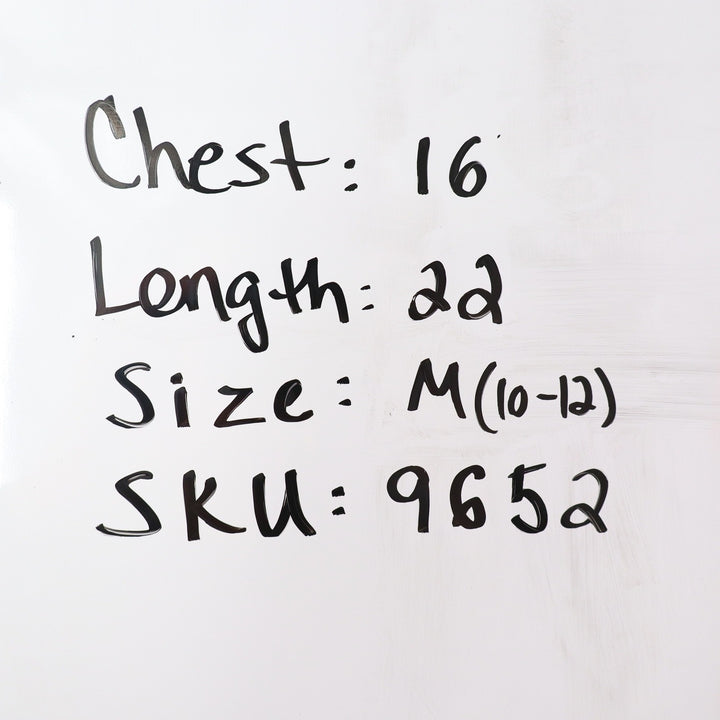 Chest: 16
Length: 22
Size: M (10-12)
SKU: 9652